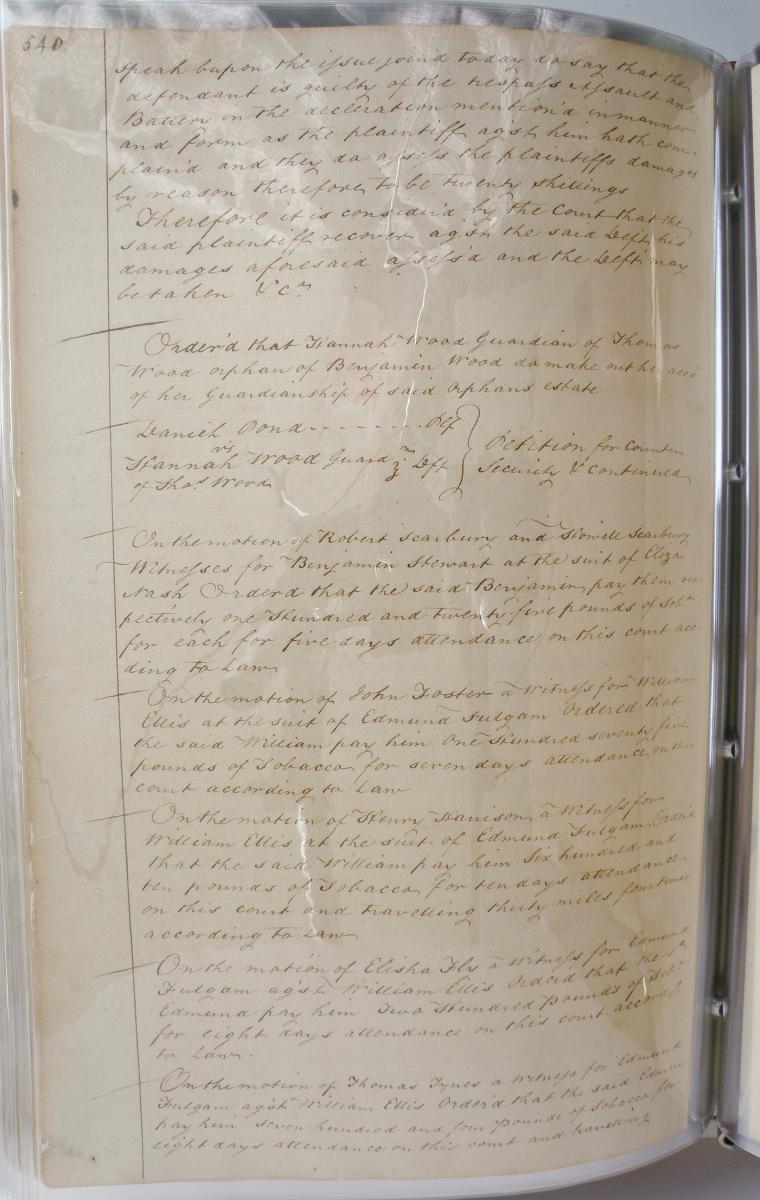 540
speak &c upon the issue joind today do say that the
defendant is guilty of the trespass Assault and
Battery in the decleration mention'd in manner
and form as the plaintiff agst him hath com-
plain'd and they do assess the plaintiffs damages
by reason therefore to be twenty shillings
Therefore it is consider'd by the Court that the
said plaintiff recover agst the said Deft his
damages aforesaid assess'd and the Deft may
be taken &ca
Order'd that Hannah Wood Guardian of Thomas
Wood orphan of Benjamin Wood do make out her acco
of her Guardianship of said orphans estate
Daniel Pond - - - - - - - - Plf
vs
Hannah Wood Guardn Deft
of Thos Wood
Petition for Counter
Security & continued
On the motion of Robert Scarbury and Howell Scarbury
Witnesses for Benjamin Stewart at the suit of Eliza
Nash Orderd that the said Benjamin pay them res
pectively one Hundred and twenty five pounds of Toba
for each for five days attendance on this court acc
ding to Law
On the motion of John Foster a Witness for William
Ellis at the suit of Edmund Fulgam Ordered that
the said William pay him One Hundred seventy five
pounds of Tobacco for seven days attendance on this
court according to Law
On the motion of Henry Harrison a Witness for
William Ellis at the suit of Edmund Fulgam Order'd
that the said William pay him Six hundred and
ten pounds of Tobacco for ten days attendance
on this court and travelling thirty miles four times
according to Law
On the motion of Elisha Fly a Witness for Edmund
Fulgam agst William Ellis Order'd that the sd
Edmund pay him Two Hundred pounds of Toba
for eight days attendance on this court accordg
to Law.
On the motion of Thomas Tynes a Witness for Edmund
Fulgam agst William Ellis Order'd that the said Edmund
pay him seven hundred and four pounds of Tobacco for
eight days attendance on this court and travelling